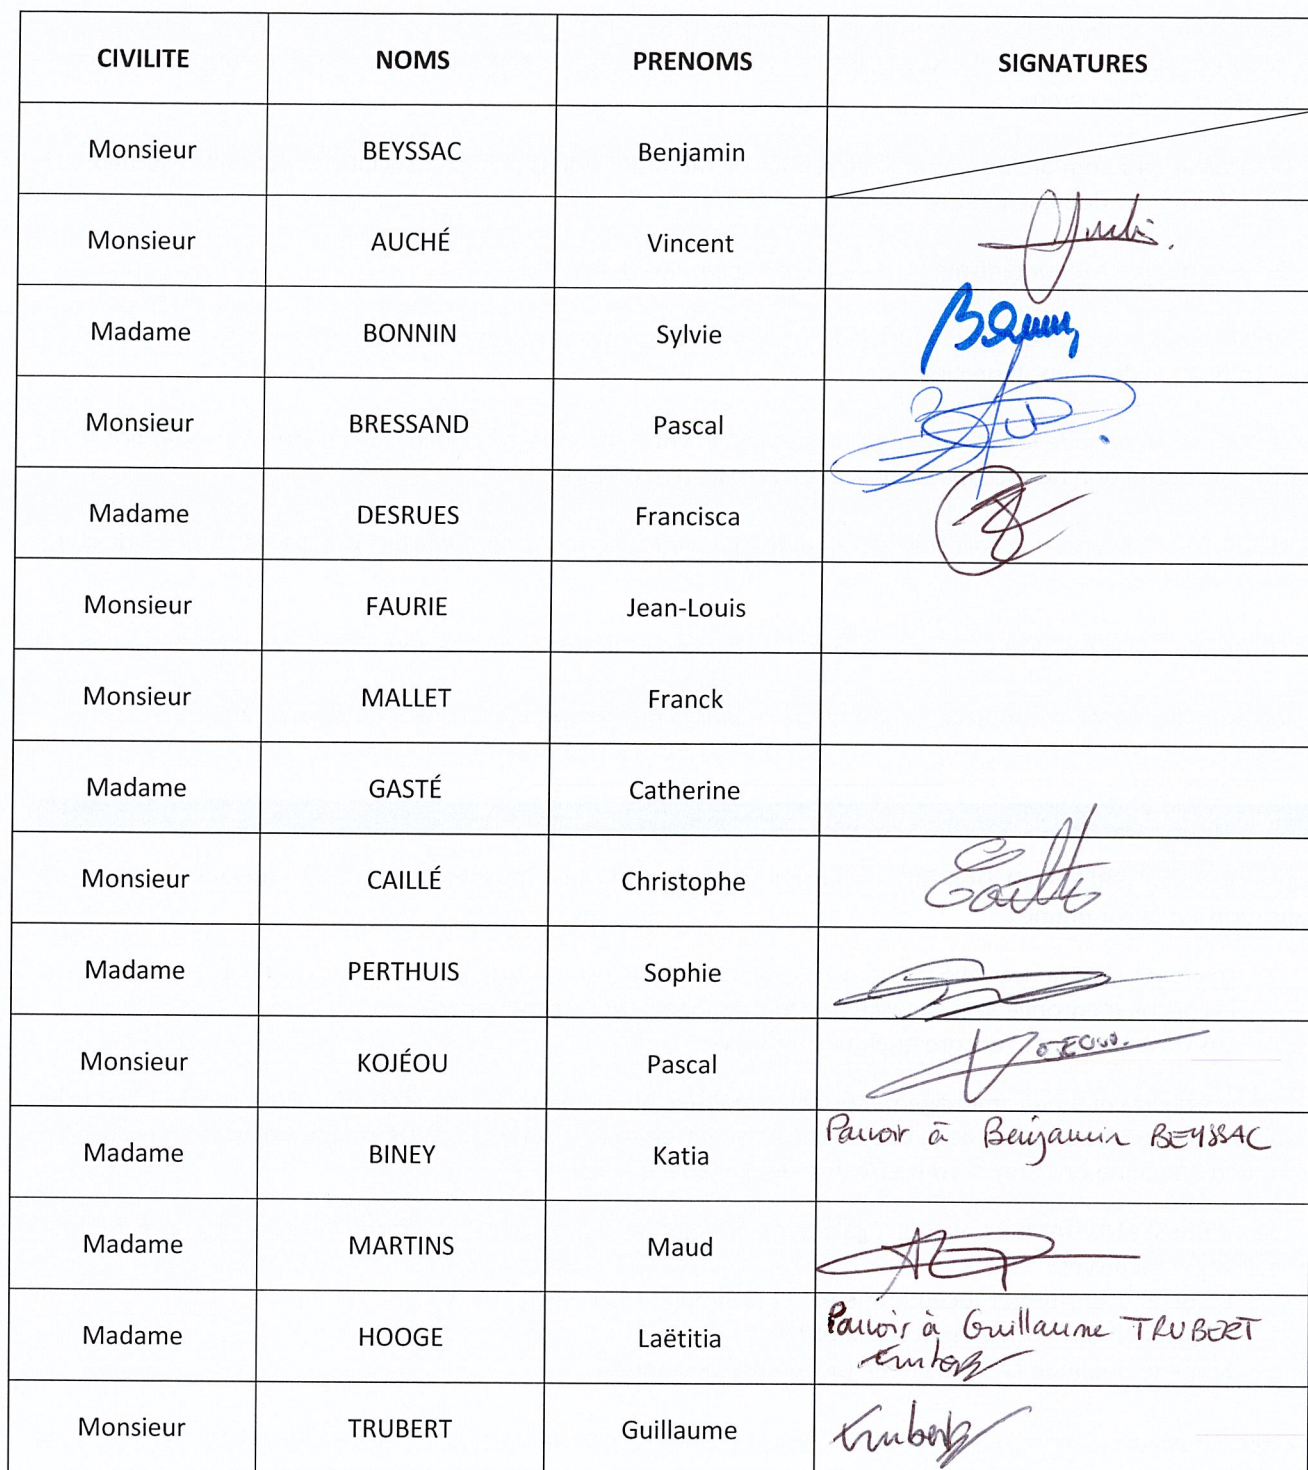 CIVILITE NOMS PRENOMS SIGNATURES
Monsieur BEYSSAC Benjamin
Monsieur AUCHÉ Vincent
Madame BONNIN Sylvie
Monsieur BRESSAND Pascal
Madame DESRUES Francisca
Monsieur FAURIE Jean-Louis
Monsieur MALLET Franck
Madame GASTÉ Catherine
Monsieur CAILLÉ Christophe
Madame PERTHUIS Sophie
Monsieur KOJÉOU Pascal
Madame BINEY Katia Pouvoir à Benjamin BEYSSAC
Madame MARTINS Maud
Madame HOOGE Laëtitia Pouvoir à Guillaume TRUBERT
Monsieur TRUBERT Guillaume